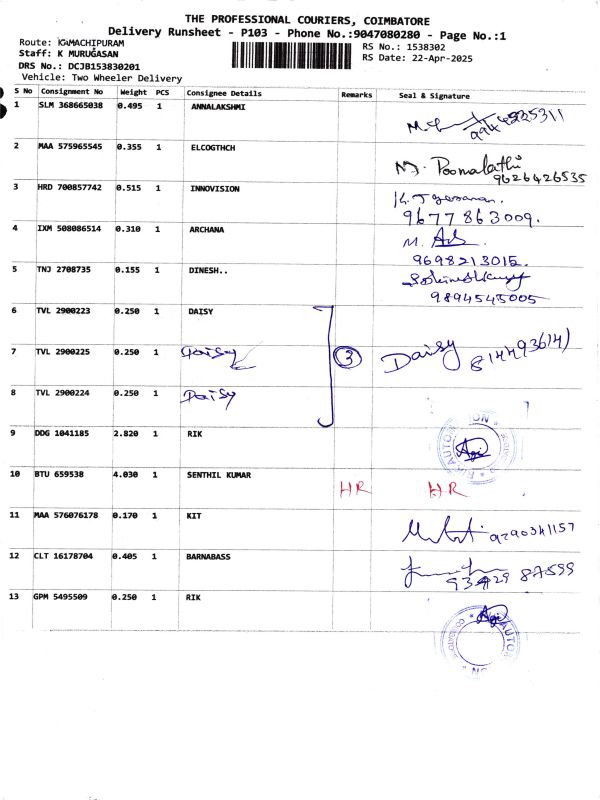 THE PROFESSIONAL COURIERS, COIMBATORE
Delivery Runsheet - P103 - Phone No.:9047080280 - Page No.:1
Route: KAMACHIPURAM
RS No.: 1538302
Staff: K MURUGASAN
RS Date: 22-Apr-2025
DRS No.: DCJB153830201
Vehicle: Two Wheeler Delivery
S No Consignment No Weight PCS Consignee Details Remarks Seal & Signature
1 SLM 368665038 0.495 1 ANNALAKSHMI
2 MAA 575965545 0.355 1 ELCOGTHCH M. Poomalathi
9626426535
3 HRD 700857742 0.515 1 INNOVISION
9677863009.
4 IXM 508086514 0.310 1 ARCHANA M.
9698213015.
5 TNJ 2708735 0.155 1 DINESH..
9894545005
6 TVL 2900223 0.250 1 DAISY
7 TVL 2900225 0.250 1 Daisy 3 Daisy
8 TVL 2900224 0.250 1 Daisy
9 DDG 1041185 2.820 1 RIK
10 BTU 659538 4.030 1 SENTHIL KUMAR HR HR
11 MAA 576076178 0.170 1 KIT 9790341157
12 CLT 16178704 0.405 1 BARNABASS
93429 87599
13 GPM 5495509 0.250 1 RIK